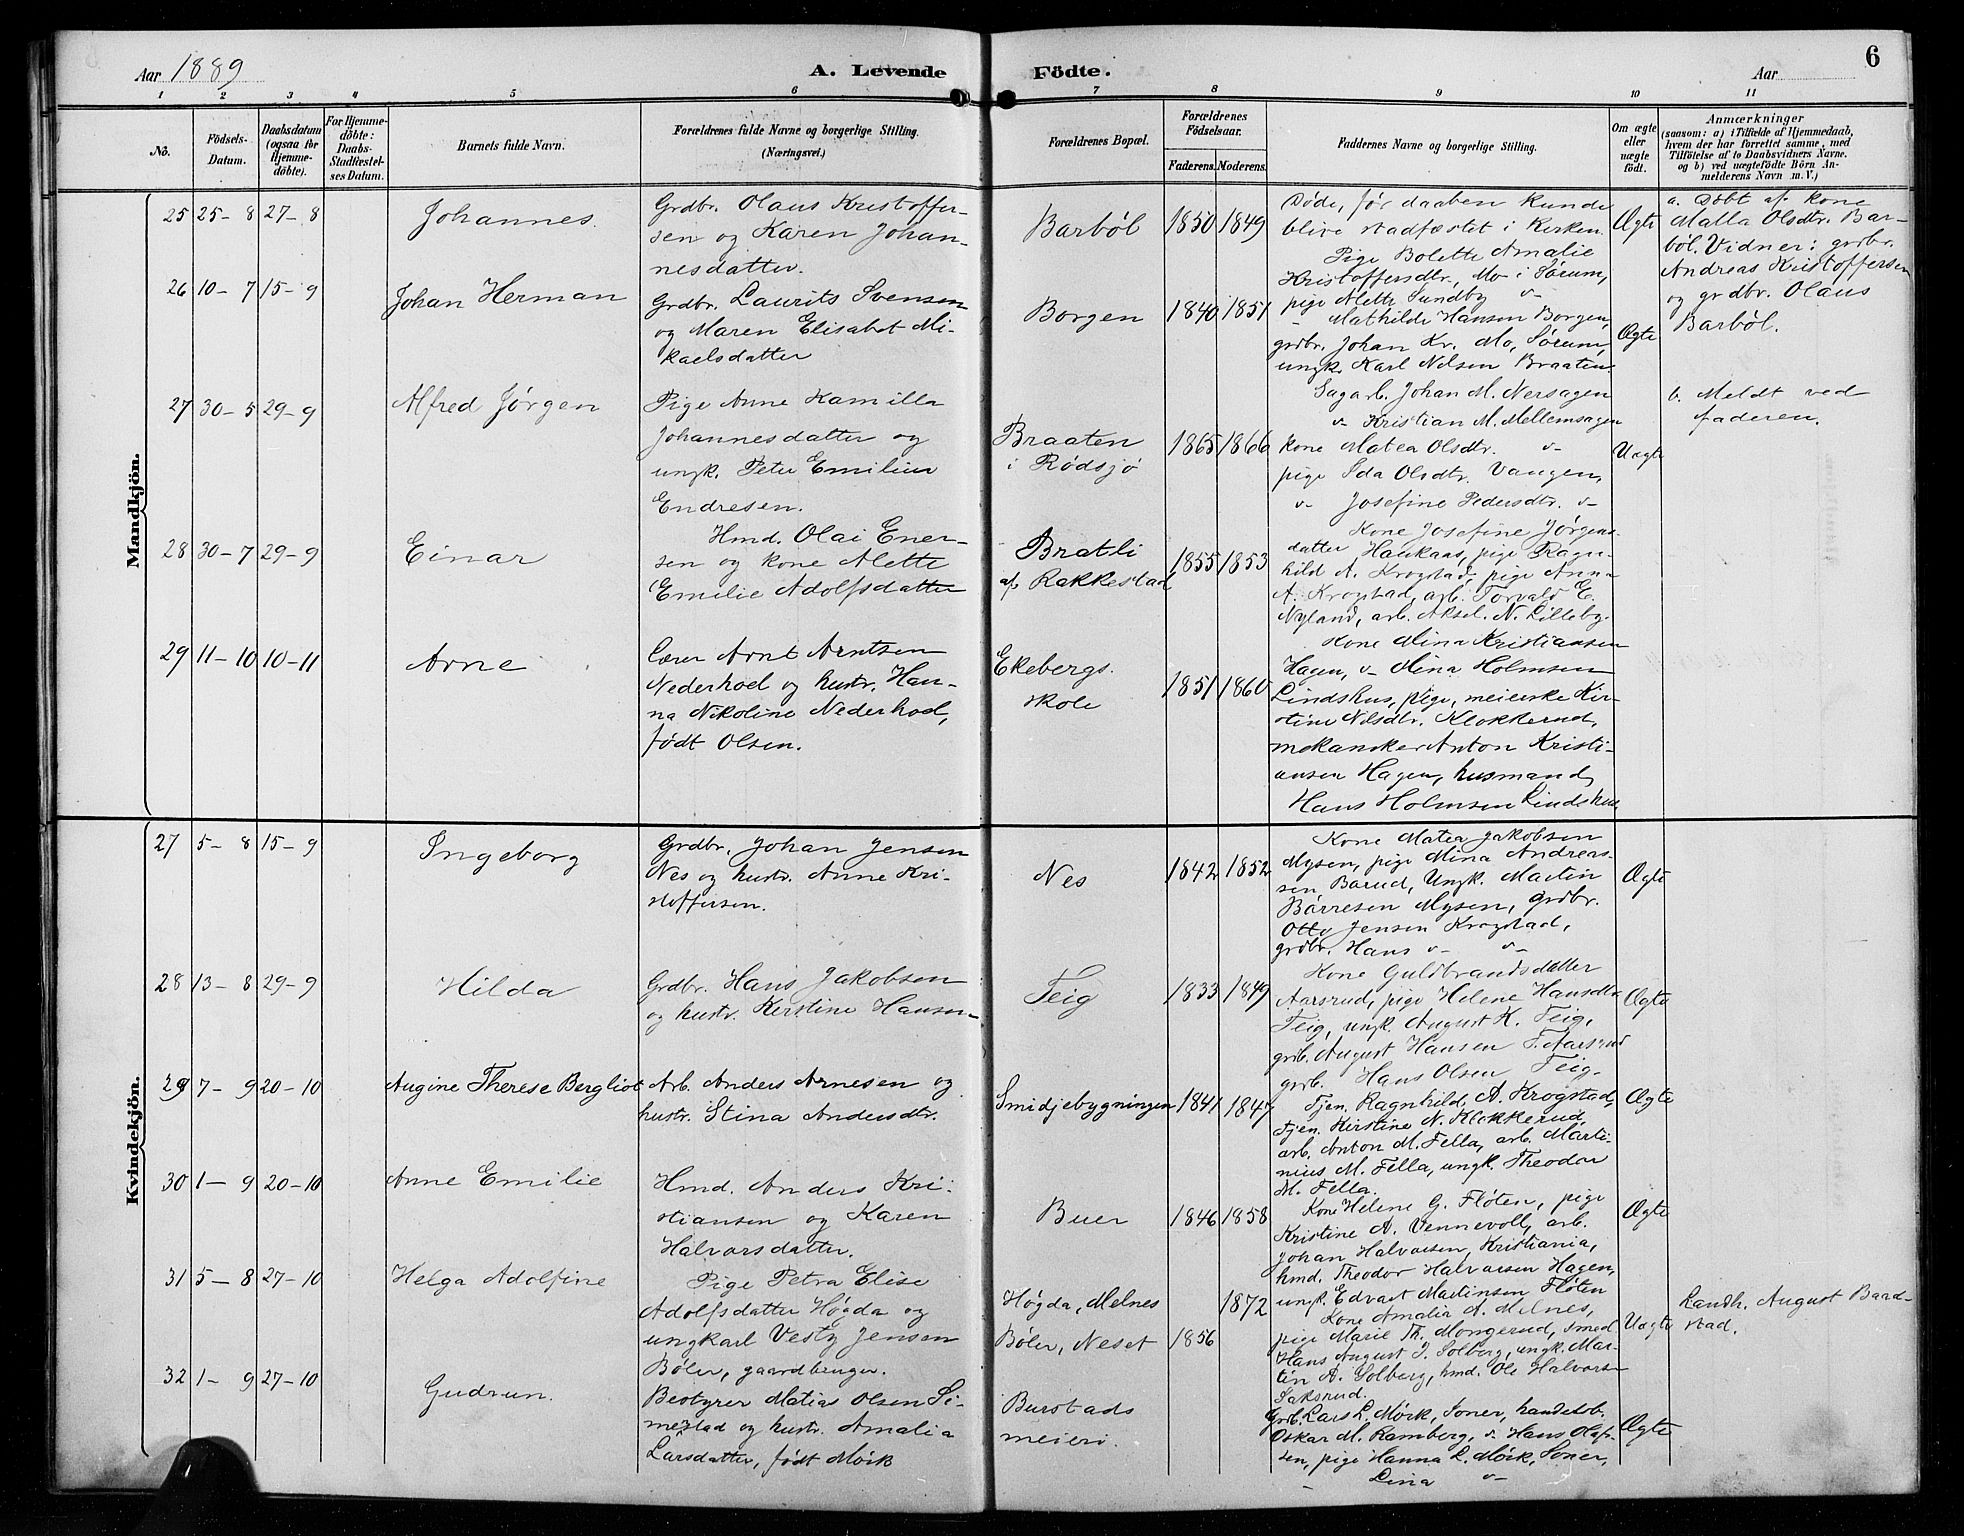 Aar 1889
A. Levende Födte.
Aar
6
1 2 3 4 5 6 7 8 9 10 11
No.
Födsels-Datum.
Daabsdatum (ogsaa for Hjemme-döbte).
For Hjemme-döbte: Daabs-Stadfestel-ses Datum.
Barnets fulde Navn.
Forældrenes fulde Navne og borgerlige Stilling. (Næringsvei.)
Forældrenes Bopæl.
Forældrenes Födselsaar.
Faderens. Moderens.
Faddernes Navne og borgerlige Stilling.
Om ægte eller uægte födt.
Anmærkninger
(saasom: a) i Tilfælde af Hjemmedaab, hvem der har forrettet samme, med Tilföielse af to Daabsvidners Navne. og b) ved uægtefödte Börn An-melderens Navn m. V.)
Mandkjön.
25 25-8 27-8 Johannes.
Grdbr. Olaus Kristoffer-
sen og Karen Johan-
nesdatter.
Barbøl 1850 1849
Døde, før daaben kunde
blive stadfæstet i Kirken.
Ægte
a. Døbt af kone
Malla Olsdtr. Bar-
bøl. Vidner: grdbr.
Andreas Kristoffersen
og grdbr. Olaus
Barbøl.
26 10-7 15-9 Johan Herman
Grdbr. Laurits Svensen
og Maren Elisabet Mi-
kaelsdatter
Borgen 1840 1851
Pige Bolette Amalie
Kristoffersdtr. Mo i Sørum,
pige Alette Sundby v-
- Mathilde Hansen Borgen,
grdbr. Johan Kr. Mo, Sørum,
ungk. Karl Nilsen Braaten
Ægte
27 30-5 29-9 Alfred Jørgen
Pige Anne Kamilla
Johannesdatter og
ungk. Peter Emilius
Endresen.
Braaten
i Rødsjø
1865 1866
Sagarb. Johan M. Nersagen
v- Kristian M. Mellemsagen
kone Matea Olsdtr. v-
pige Ida Olsdtr. Vangen,
v- Josefine Pedersdtr. v-
Uægte
b. Meldt ved
faderen.
28 30-7 29-9 Einar
Hmd. Olai Ener-
sen og kone Alette
Emilie Adolfsdatter
Bratli
af Rakkestad
1855 1853
Kone Josefine Jørgens-
datter Haukaas, pige Ragn-
hild A. Krogstad, pige Anna
A. Krogstad, arb. Torvald E.
Nyland, arb. Aksel N. Lilleby.
29 11-10 10-11 Arne
Lærer Arnt Arntsen
Nederhoel og hustr. Han-
na Nikoline Nederhoel,
født Olsen.
Ekebergs
skole
1851 1860
Kone Mina Kristiansen
Hagen, v- Mina Holmsen
Lindshus, pige, meierske Kir-
stine Nilsdtr. Klokkerud,
mekansker Anton Kristi-
ansen Hagen, husmand
Hans Holmsen Lindshus
Kvindekjön.
27 5-8 15-9 Ingeborg
Grdbr. Johan Jensen
Nes og hustr. Anne Kri-
stoffersen.
Nes 1842 1852
Kone Matea Jakobsen
Mysen, pige Mina Andreas-
sen, Barud, Ungk. Martin
Børresen Mysen, grdbr.
Otto Jensen Krogstad,
grdbr. Hans v- v-
Ægte
28 13-8 29-9 Hilda
Grdbr. Hans Jakobsen
og hustr. Kerstine Hansen
Teig 1833 1849
Kone Guldbrandsdatter
Aarsrud, pige Helene Hansdtr.
Teig, ungk. August K. Teig,
grb. August Hansen T. Aarsrud
grb. Hans Olsen Teig
Ægte
29 7-9 20-10 Augine Therese Bergliot
Arb. Anders Arnesen og
hustr. Stina Andersdtr.
Smidjebygningen 1841 1847
Tjen. Ragnhild A. Krogstad,
Tjen. Kerstine N. Klokkerud,
arb. Anton M. Fella, arb. Marti-
nius M. Fella, ungk. Theodor
M. Fella.
Ægte
30 1-9 20-10 Anne Emilie
Hmd. Anders Kri-
stiansen og Karen
Halvorsdatter.
Buer 1846 1858
Kone Helene G. Fløten, pige
Kristine A. Vennevoll, arb.
Johan Halvorsen, Kristiania,
hmd. Theodor Halvorsen Hagen,
ungk. Edvart Martinsen Fløten
Ægte
31 5-8 27-10 Helga Adolfine
Pige Petra Elise
Adolfsdatter Høgda og
ungkarl Vesty Jensen
Bøler, gaardbruger.
Høgda, Melnes 1872
Bøler, Neset 1856
Kone Amalia A. Melnes,
pige Marie Th. Mongerud, smed
Hans August J. Solberg, ungk. Mar-
tin A. Solberg, hmd. Ole Halvorsen
Saksrud.
Uægte
Landh. August Bard-
stad.
32 1-9 27-10 Gudrun.
Bestyrer Matias Olsen Si-
mestad og hustr. Amalia
Larsdatter, født Mørk
Burstads
meieri.
Grb. Lars L. Mørk, Soner, handelsb.
Oskar M. Ramberg, v- Hans Olaf-
sen, pige Hanna L. Mørk, Soner,
- Lina v-
Ægte